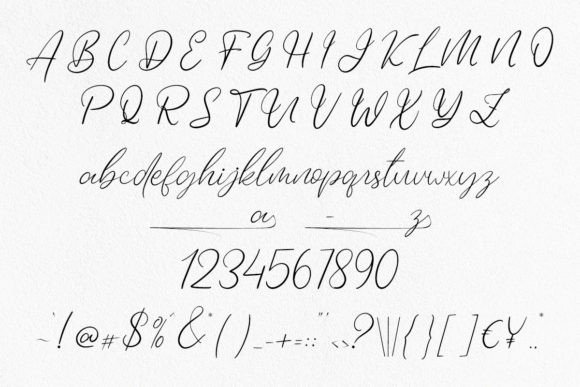 A B C D E F G H I J K L M N O
P Q R S T U V W X Y Z
abcdefghijklmnopqrstuvwxyz
a - z
1234567890
~`!@#$%^&*()_-+=::"'<>?\||/{}[]€¥..*